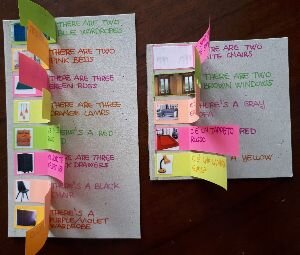 THERE ARE TWO
BLUE WARDROPES
THERE ARE TWO
PINK BEDS
THERE ARE THREE
GREEN RUGS
THERE ARE THREE
ORANGE LAMPS
THERE'S A RED
THERE ARE THREE
DRAWERS
THERE'S A BLACK
CHAIR
THERE'S A
PURPLE/VIOLET
WARDROBE
THERE ARE TWO
WHITE CHAIRS
THERE ARE TWO
BROWN WINDOWS
THERE'S A GRAY
SOFA
C'È UN TAPPETO
RED
RUG
A YELLOW